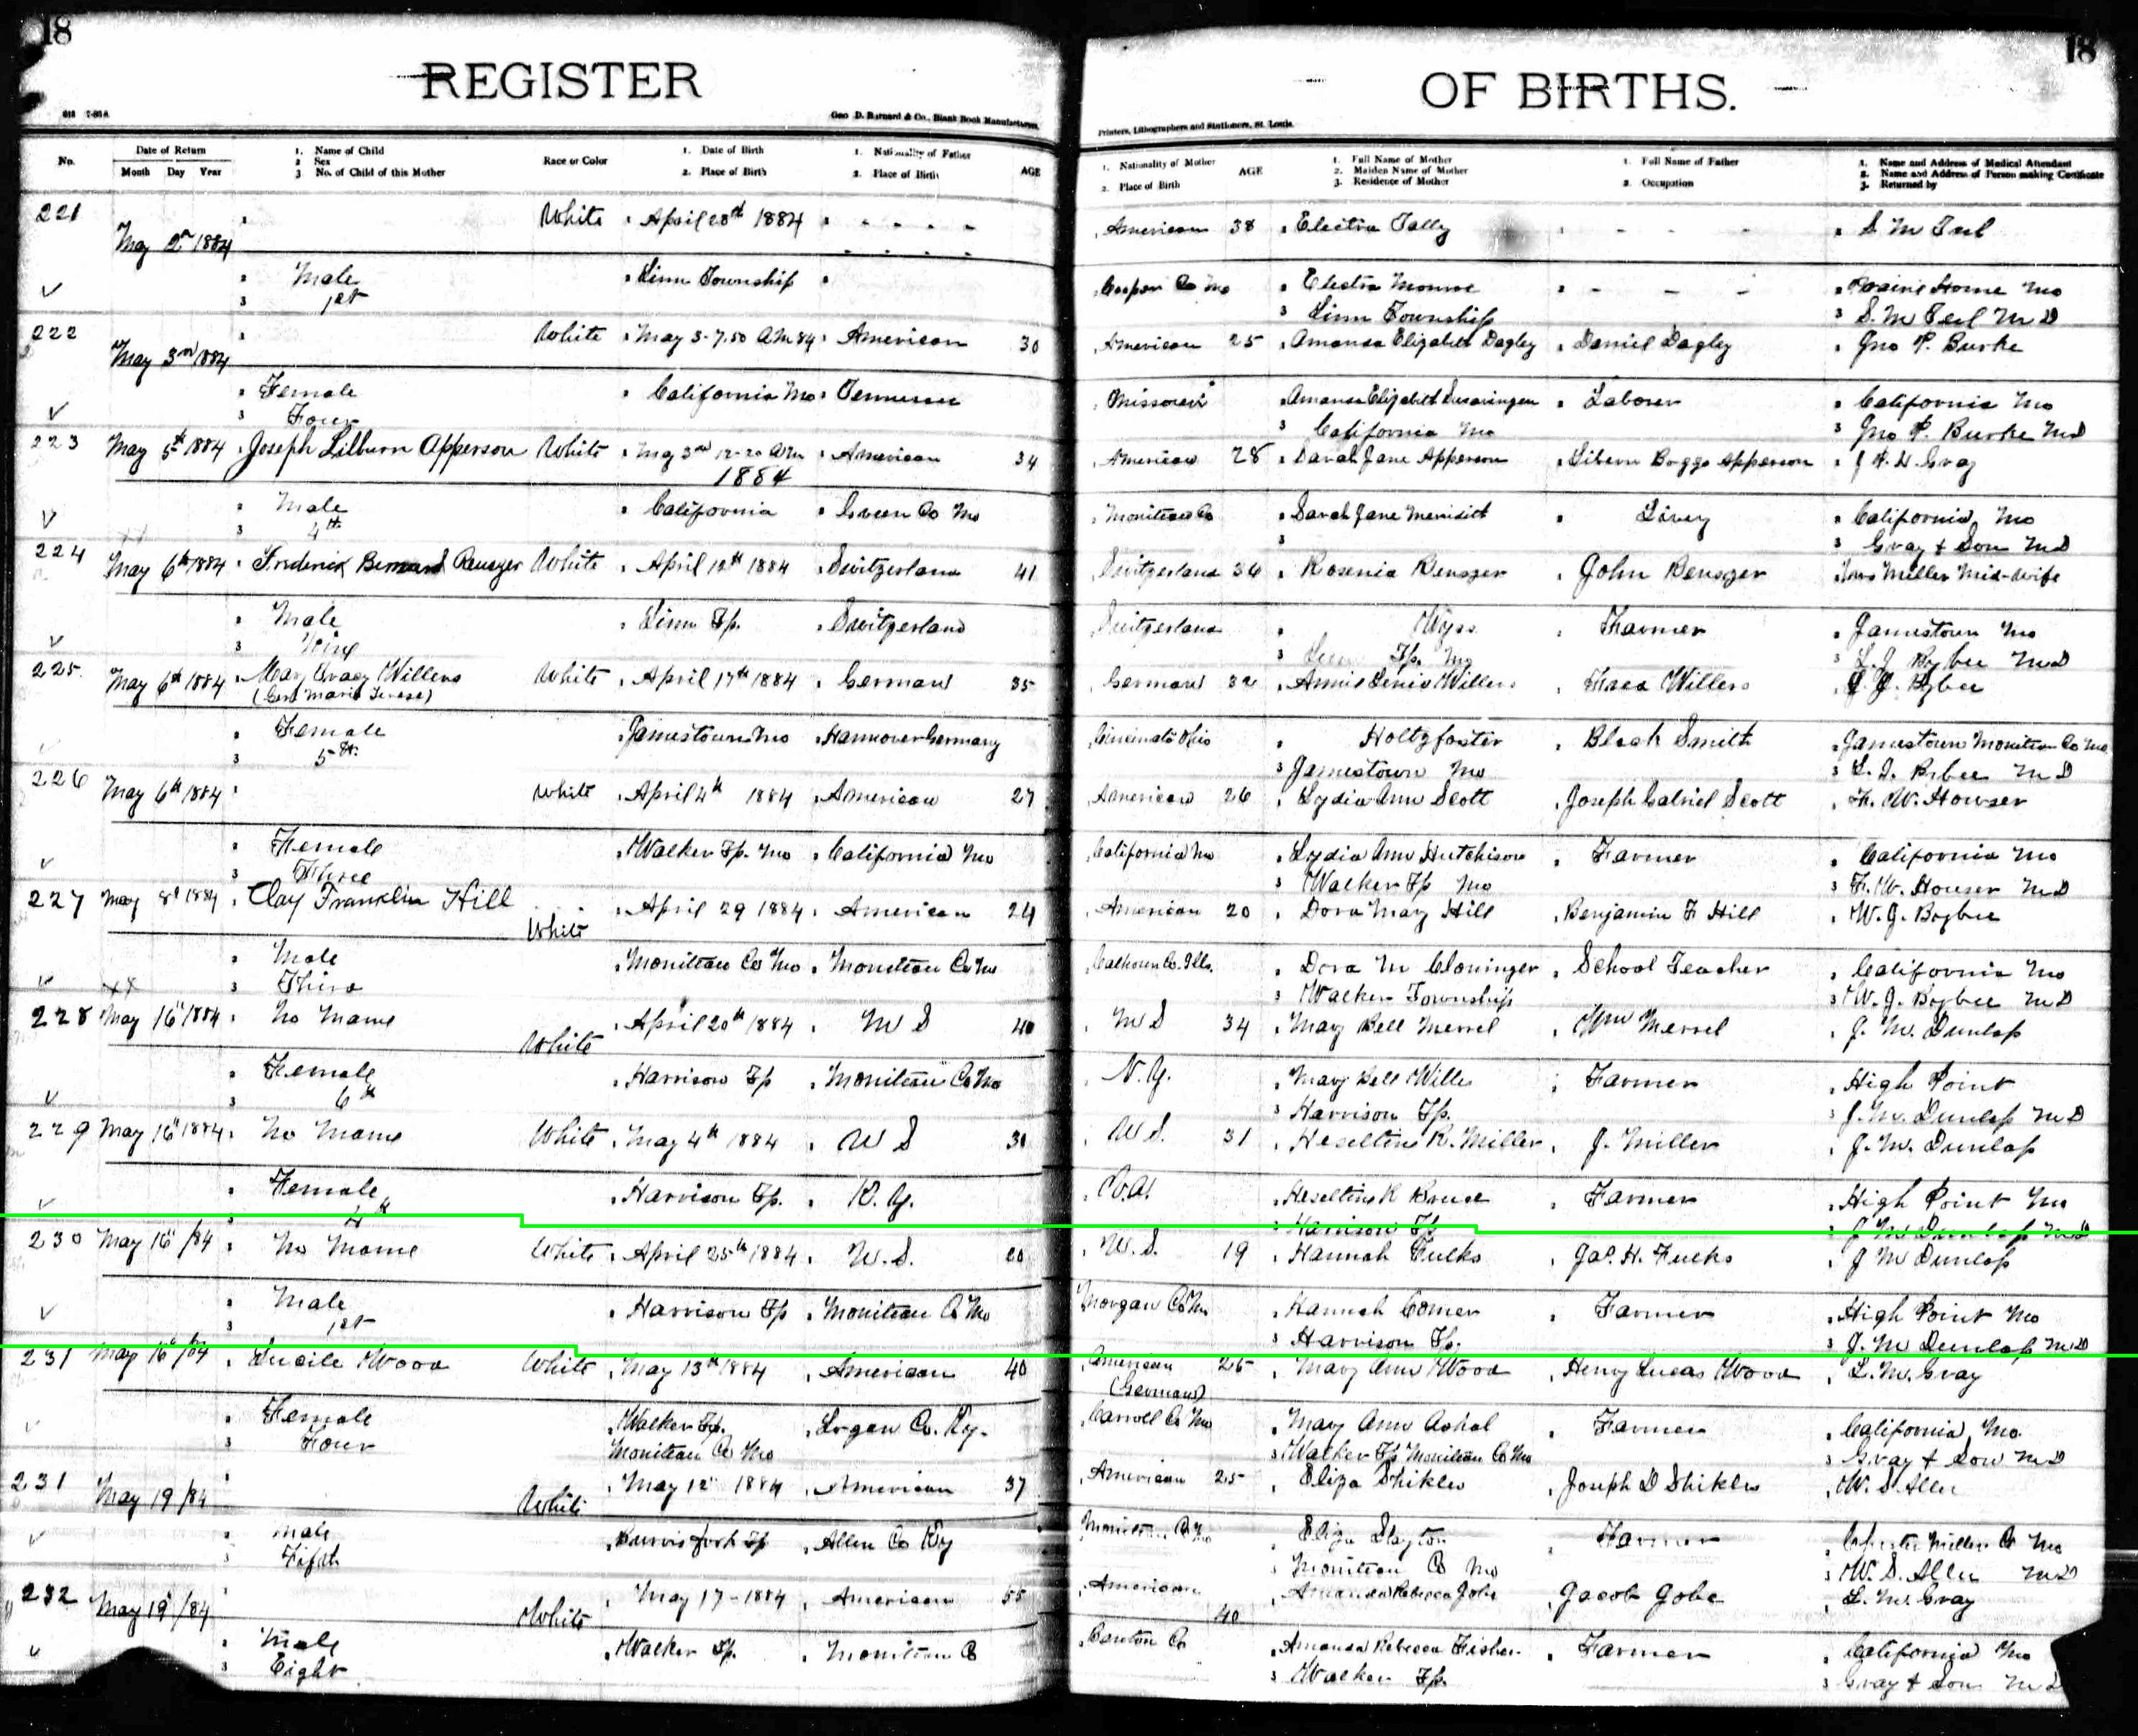 18
18
REGISTER
OF BIRTHS.
Geo D. Barnard & Co., Blank Book Manufacturers,
Printers, Lithographers and Stationers, St. Louis.
No. Date of Return Month Day Year 1. Name of Child 2 Sex 3 No. of Child of this Mother Race or Color 1. Date of Birth 2. Place of Birth 1. Nationality of Father 2. Place of Birth AGE 1. Nationality of Mother 2. Place of Birth AGE 1. Full Name of Mother 2. Maiden Name of Mother 3. Residence of Mother 1. Full Name of Father 2. Occupation 1. Name and Address of Medical Attendant 2. Name and Address of Person making Certificate 3. Returned by
221 May 2n 1884 White April 28th 1884 American 38 Electra Tally S M Teel
Male Linn Township Cooper Co Mo Electra Monroe Prairie Home Mo
3 1st 3 Linn Township 3 S. M Teel M D
222 May 3rd 1884 White May 3-7.50 AM 84 American 30 American 25 Amanda Elizabeth Dagley Daniel Dagley Jno P. Burke
Female California Mo Tennessee Missouri Amanda Elizabeth Swearingen Laborer California Mo
3 Four 3 California Mo 3 Jno P. Burke MD
223 May 5th 1884 Joseph Lilburn Apperson White May 3rd 12-20 AM 1884 American 34 American 28 Sarah Jane Apperson Liburn Boggs Apperson J P. H Gray
Male California Green Co Mo Moniteau Co Sarah Jane Meredith Livery California Mo
3 4th 3 3 Gray & Son MD
224 May 6th 1884 Frederick Bernard Reuszer White April 12th 1884 Switzerland 41 Switzerland 36 Rosenia Reuszer John Reuszer Mrs Miller Mid-wife
Male Linn Tp. Switzerland Switzerland Wyss Farmer Jamestown Mo
3 Nine 3 Linn Tp. Mo 3 L. J Bybee MD
225 May 6th 1884 May Gracy Willers White April 17th 1884 German 35 German 32 Annie Willers Willers L. J. Bybee
Female Jamestown Mo Hannover Germany Cincinnati Ohio Holtzfoster Black Smith Jamestown Moniteau Co Mo
3 5th 3 Jamestown Mo 3 L. J. Bybee M D
226 May 6th 1884 White April 4th 1884 American 27 American 26 Lydia Ann Scott Joseph Gabriel Scott F. W. Howser
Female Walker Tp. Mo California Mo California Mo Lydia Ann Hutchison Farmer California Mo
3 Three 3 Walker Tp Mo 3 F. W. Houser MD
227 May 8th 1884 Clay Franklin Hill White April 29 1884 American 24 American 20 Dora May Hill Benjamin F Hill W. J. Bybee
Male Moniteau Co Mo Moniteau Co Mo Calhoun Co. Ills. Dora M Cloninger School Teacher California Mo
3 Third 3 Walker Township 3 W. J. Bybee MD
228 May 16" 1884 No Name White April 20th 1884 U S 40 U S 34 May Bell Merrel Wm Merrel J. M. Dunlop
Female Harrison Tp Moniteau Co Mo N. Y. Mary Bell Wills Farmer High Point
3 6th 3 Harrison Tp. 3 J. M. Dunlop M D
229 May 16" 1884 No Name White May 4th 1884 U S 31 U S. 31 Heseltine R. Miller J. Miller J. M. Dunlop
Female Harrison Tp. K. Y. Heseltine R Bruce Farmer High Point Mo
3 4th 3 Harrison Tp 3 J M Dunlop MD
230 May 16" /84 No Name White April 25th 1884 U. S. 20 U. S. 19 Hannah Fulks Jas. H. Fulks J M Dunlop
Male Harrison Tp Moniteau Co Mo Morgan Co Mo Hannah Comer Farmer High Point Mo
3 1st 3 Harrison Tp. 3 J. M Dunlop MD
231 May 16" /84 Lucile Wood White May 13th 1884 American 40 American (German) 26 Mary Ann Wood Henry Lucas Wood L. M. Gray
Female Walker Tp. Moniteau Co Mo Logan Co. Ky. Carroll Co Mo May Ann Farmer California, Mo.
3 Four 3 Walker Tp Moniteau Co Mo 3 Gray & Son MD
231 May 19 /84 White May 12" 1884 American 37 American 25 Eliza Shikles Joseph D Shikles W. S. Allee
Male Burris Fork Tp Allen Co Ky Moniteau Co Mo Eliza Slayton Farmer Miller Co Mo
3 Fifth 3 Moniteau Co Mo 3 W. S. Allee MD
232 May 19" /84 White May 17-1884 American 55 American 40 Amanda Rebecca Jobe Jacob Jobe L. M. Gray
Male Walker Tp. Moniteau Co Canton Co Amanda Rebecca Fisher Farmer California Mo
3 Eight 3 Walker Tp. 3 Gray & Son MD